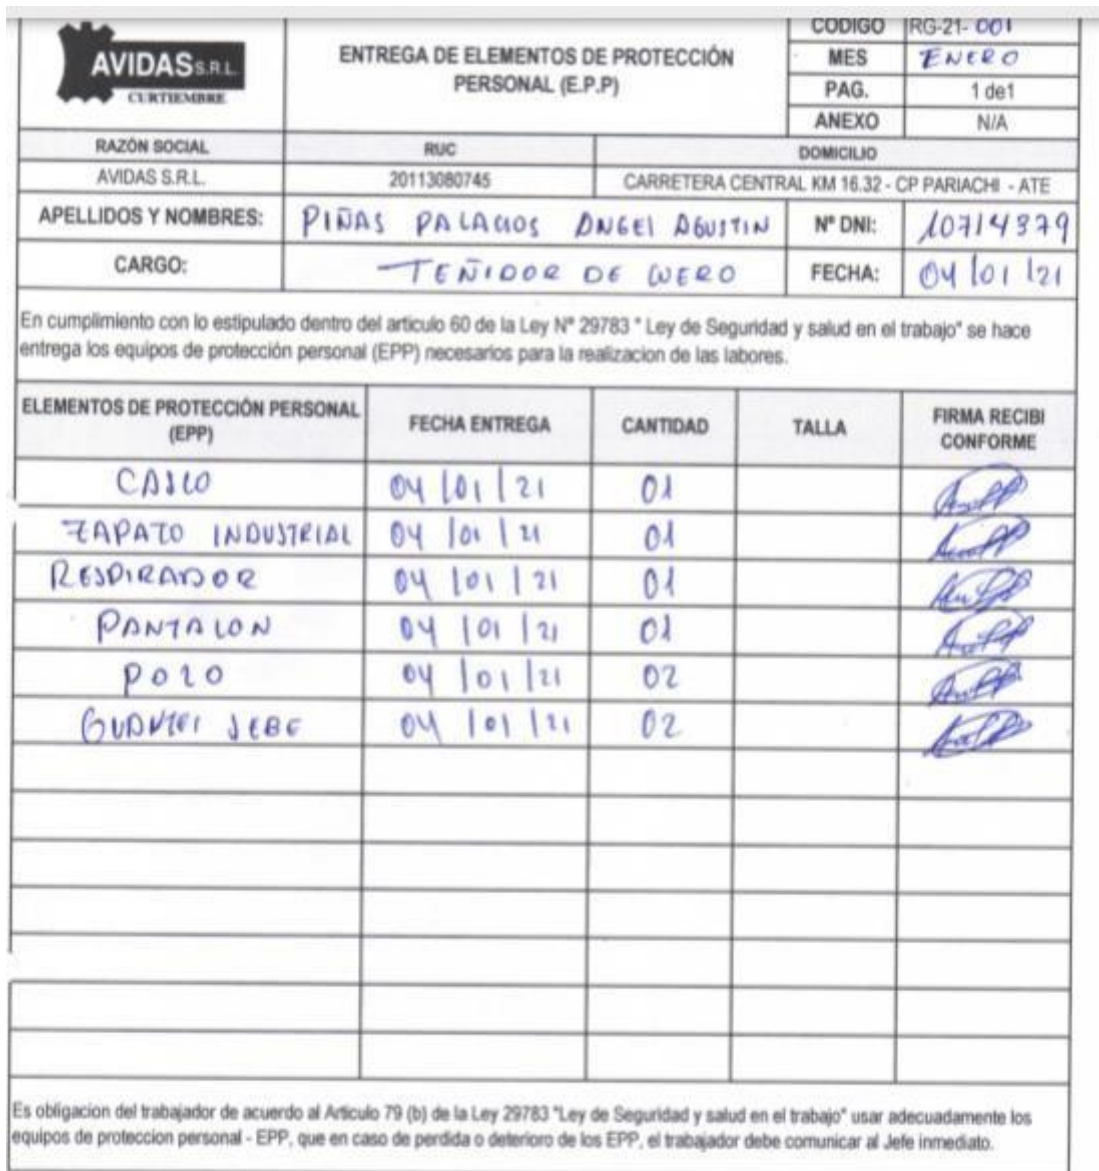 CODIGO RG-21-001
AVIDAS S.R.L.
CURTIEMBRE
ENTREGA DE ELEMENTOS DE PROTECCIÓN
PERSONAL (E.P.P)
MES ENERO
PAG. 1 de1
ANEXO N/A
RAZÓN SOCIAL RUC DOMICILIO
AVIDAS S.R.L. 20113080745 CARRETERA CENTRAL KM 16.32 - CP PARIACHI - ATE
APELLIDOS Y NOMBRES: PIÑAS PALACIOS ANGEL AGUSTIN N° DNI: 10714379
CARGO: TEÑIDOR DE CUERO FECHA: 04/01/21
En cumplimiento con lo estipulado dentro del articulo 60 de la Ley N° 29783 " Ley de Seguridad y salud en el trabajo" se hace
entrega los equipos de protección personal (EPP) necesarios para la realizacion de las labores.
ELEMENTOS DE PROTECCIÓN PERSONAL
(EPP)
FECHA ENTREGA CANTIDAD TALLA
FIRMA RECIBI
CONFORME
CASCO 04/01/21 01
ZAPATO INDUSTRIAL 04/01/21 01
RESPIRADOR 04/01/21 01
PANTALON 04/01/21 01
POLO 04/01/21 02
GUANTES JEBE 04/01/21 02
Es obligacion del trabajador de acuerdo al Articulo 79 (b) de la Ley 29783 "Ley de Seguridad y salud en el trabajo" usar adecuadamente los
equipos de proteccion personal - EPP, que en caso de perdida o deterioro de los EPP, el trabajador debe comunicar al Jefe inmediato.